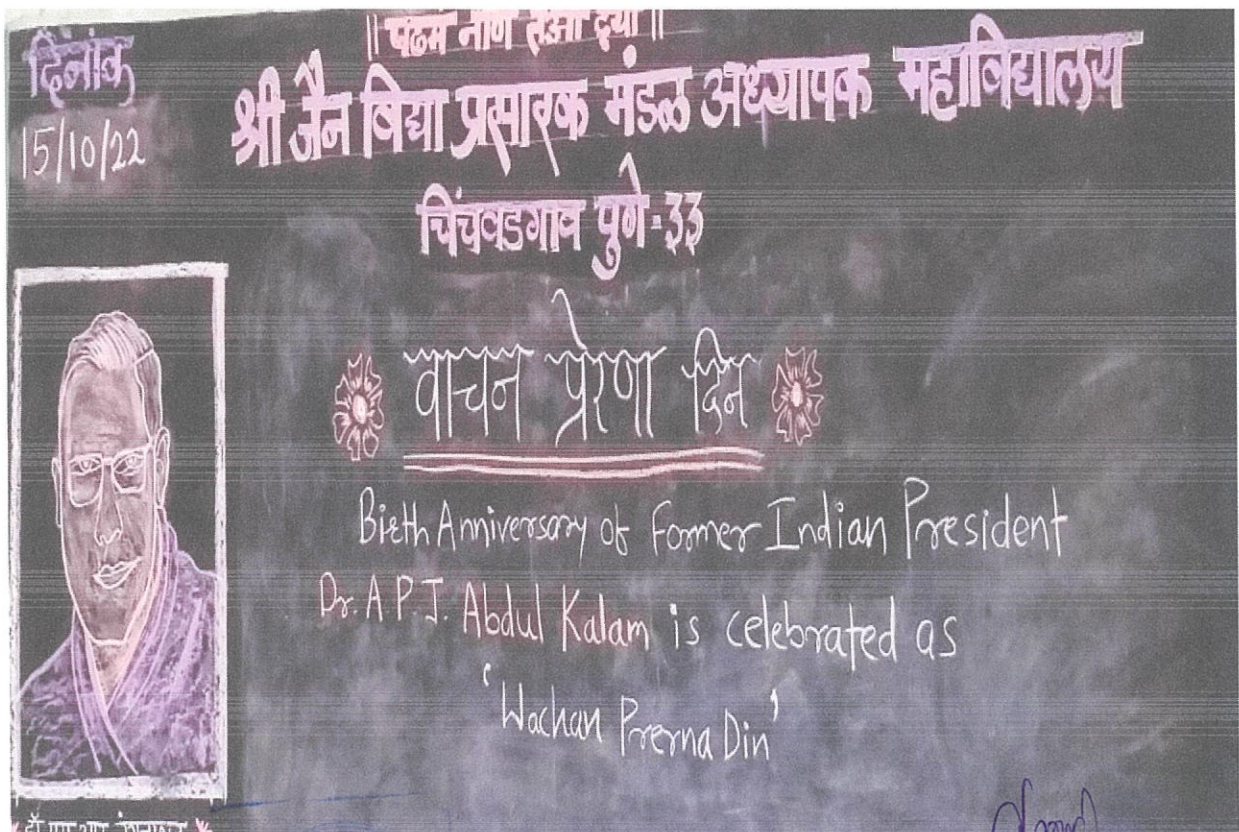 ॥ पढमं नाणं तओ दया ॥
दिनांक
15/10/22
श्री जैन विद्या प्रसारक मंडळ अध्यापक महाविद्यालय
चिंचवडगाव पुणे-३३
वाचन प्रेरणा दिन
Birth Anniversary of Former Indian President
Dr. A.P.J. Abdul Kalam is celebrated as
'Wachan Prerna Din'